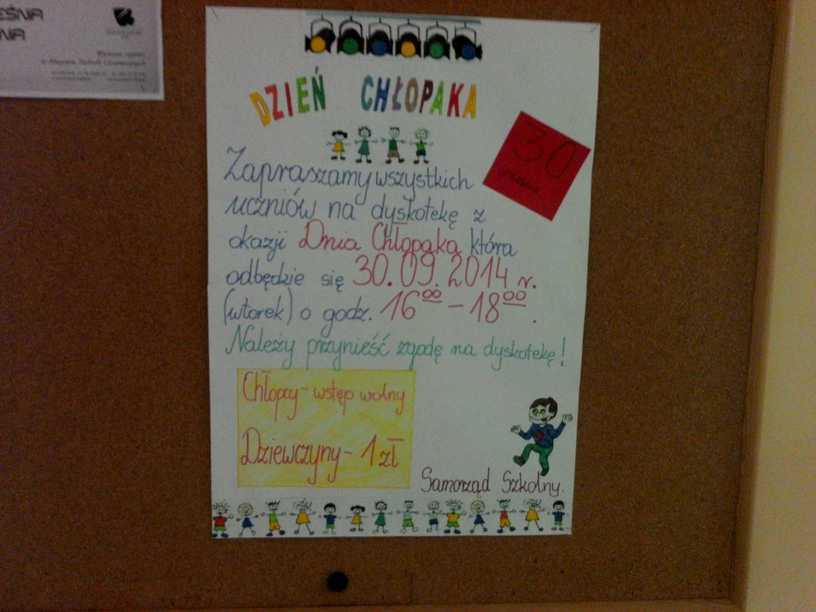 DZIEŃ CHŁOPAKA
30
Zapraszamy wszystkich
uczniów na dyskotekę z
okazji Dnia Chłopaka która
odbędzie się 30.09.2014 r.
(wtorek) o godz. 16⁰⁰ - 18⁰⁰.
Należy przynieść zgodę na dyskotekę!
Chłopcy - wstęp wolny
Dziewczyny - 1 zł
Samorząd Szkolny.